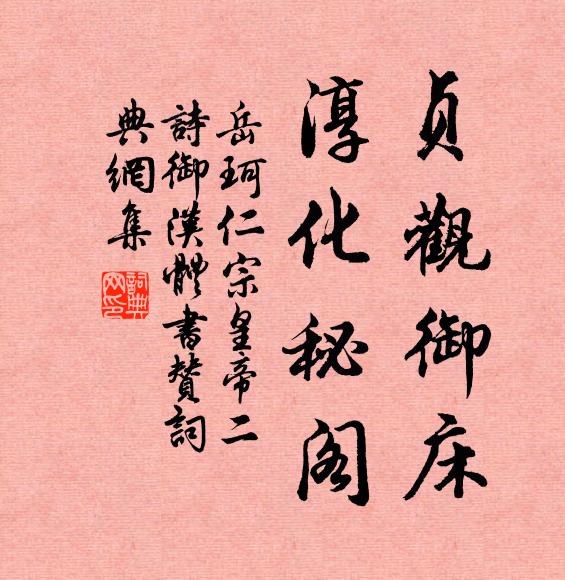 贞觀御床
淳化秘阁
岳珂仁宗皇帝二
詩御漢體書赞詞
典網集
詞典网印